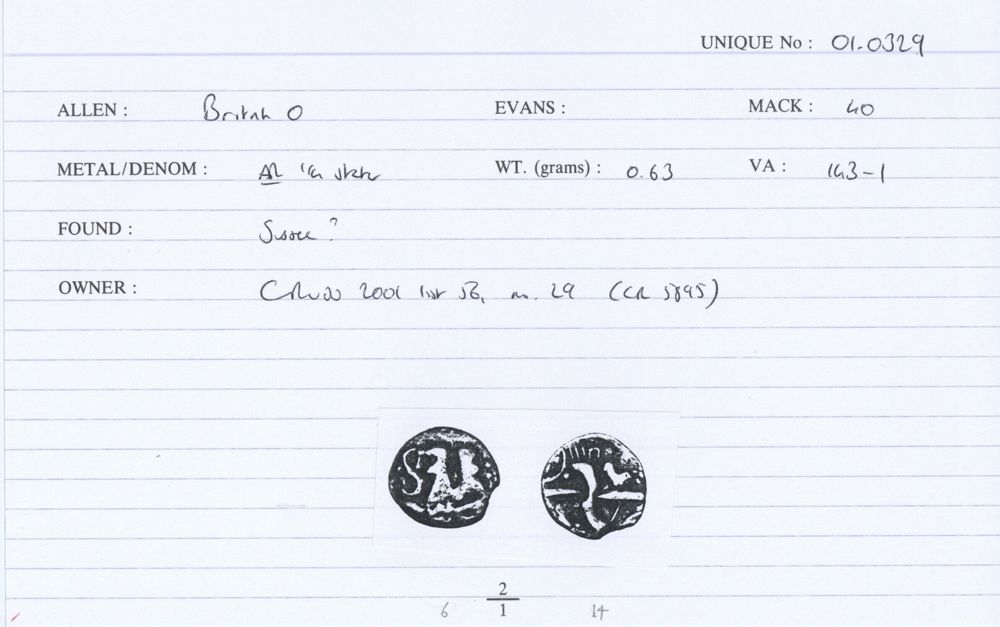 UNIQUE No : 01.0329
ALLEN : British O EVANS : MACK : 40
METAL/DENOM : 1/4 stater WT. (grams) : 0.63 VA : 143-1
FOUND : Sussex ?
OWNER : CRUB 2001 list 56, no. 29 (CR 5895)
2
6 1 14